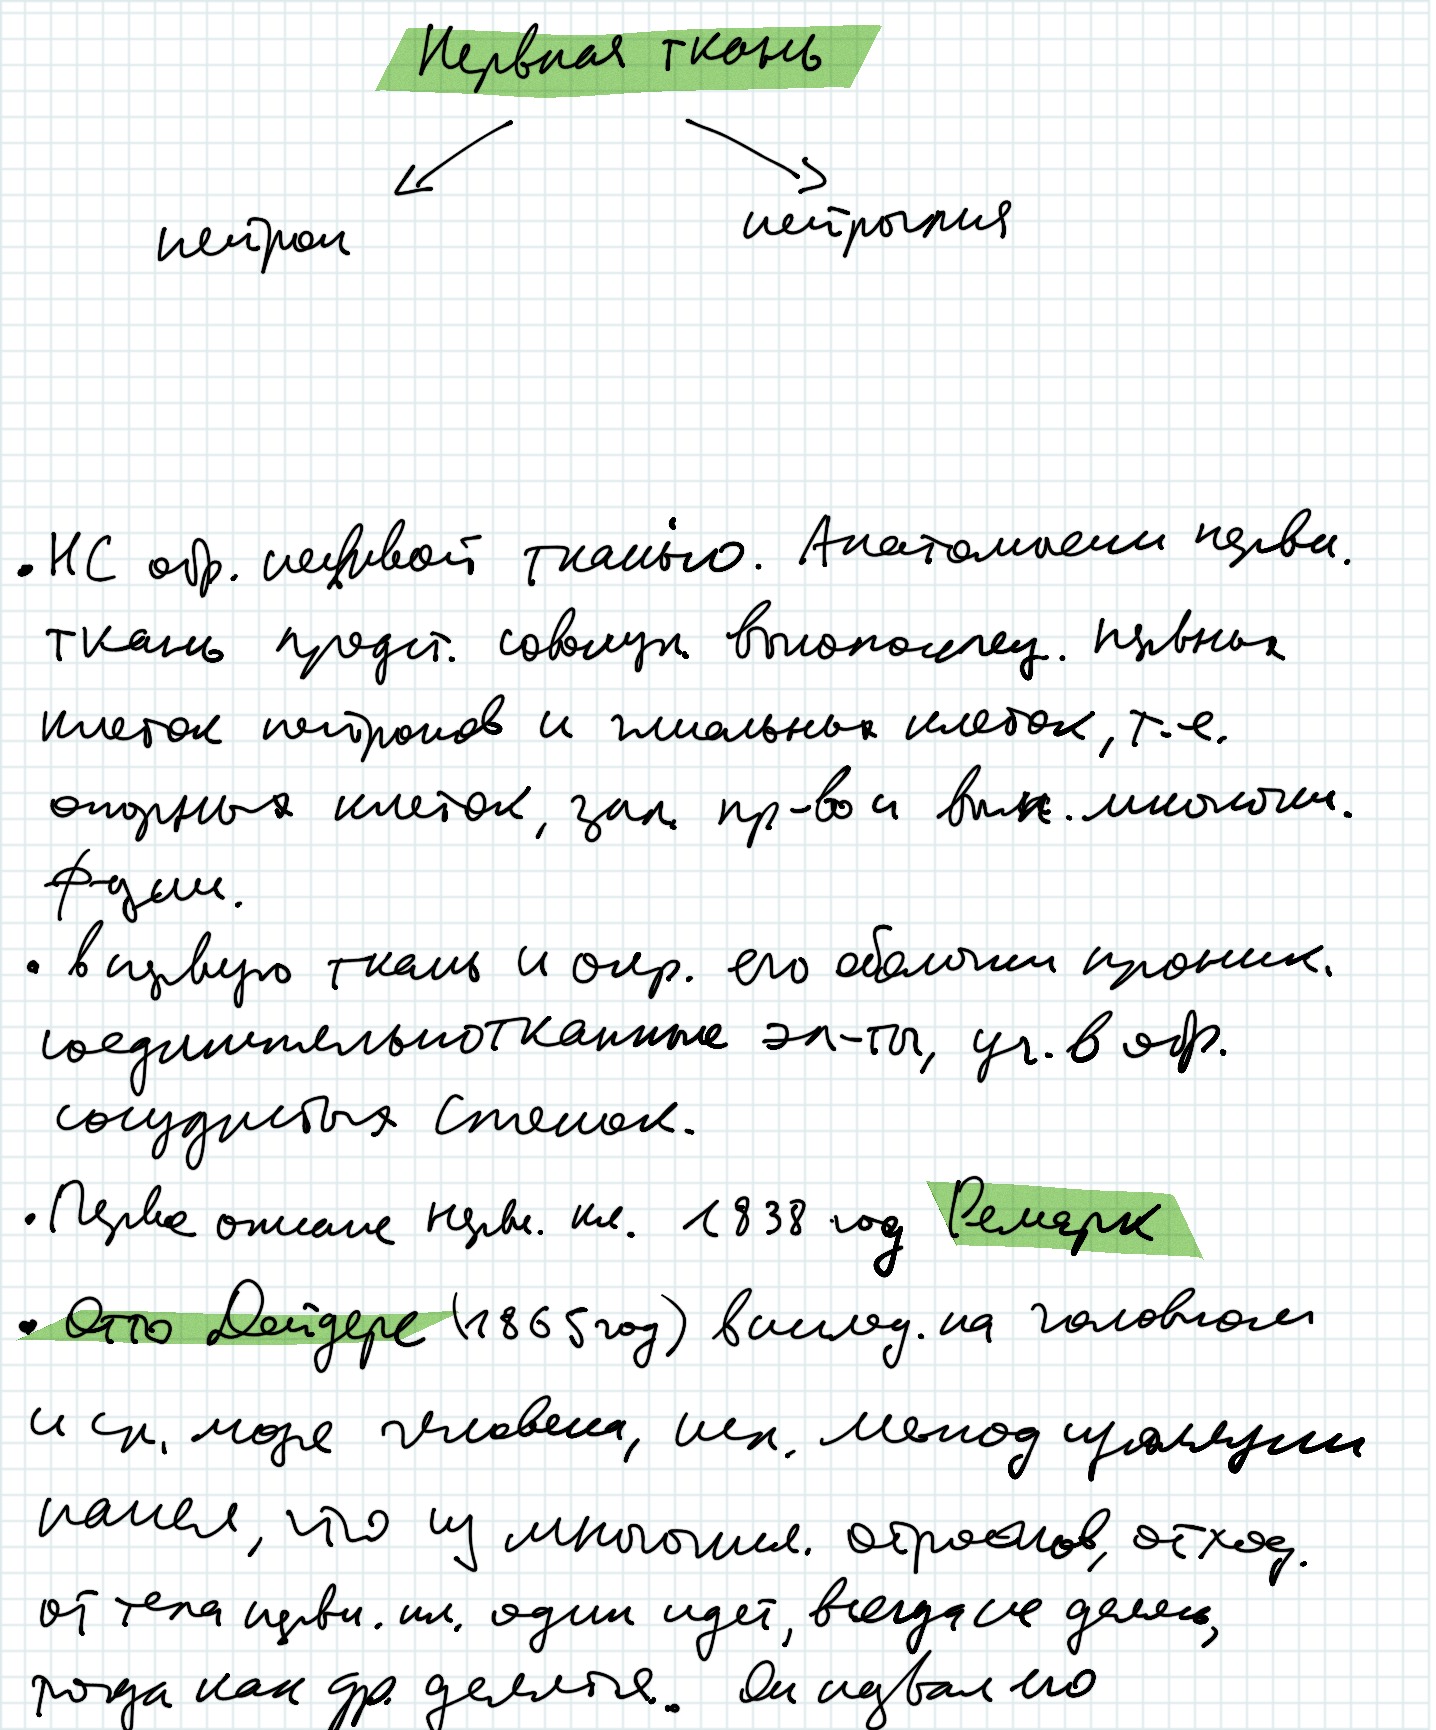 Нервная ткань
нейрон
нейроглия
• НС обр. нервной тканью. Анатомически нервн.
ткань предст. совокуп. высокоспец. нервных
клеток нейронов и глиальных клеток, т.е.
опорных клеток, зап. пр-во и вып. многочисл.
ф-ции.
• в нервную ткань и окр. его оболочки проник.
соединительнотканные эл-ты, уч. в обр.
сосудистых стенок.
• Первое описание нерв. кл. 1838 год Ремарк
• Отто Дейдерс (1865 год) в исслед. на головном
и сп. мозге человека, исп. метод изоляции
нашел, что из многочисл. отростков, отход.
от тела нервн. кл. один идет, всегда не делясь,
тогда как др. делятся.. Он назвал его